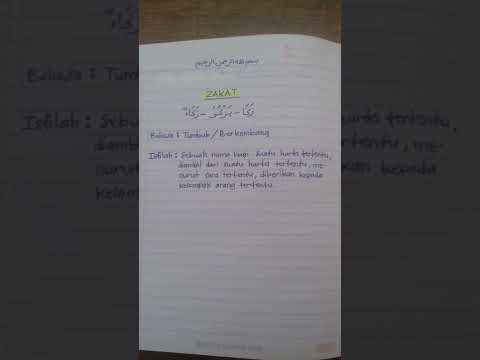 بسم الله الرحمن الرحيم
ZAKAT
زَكَا - يَزْكُوْ - زَكَاةً
Bahasa : Tumbuh / Berkembang
Istilah : Sebuah nama bagi suatu harta tertentu,
diambil dari suatu harta tertentu, me-
nurut cara tertentu, diberikan kepada
kelompok orang tertentu.